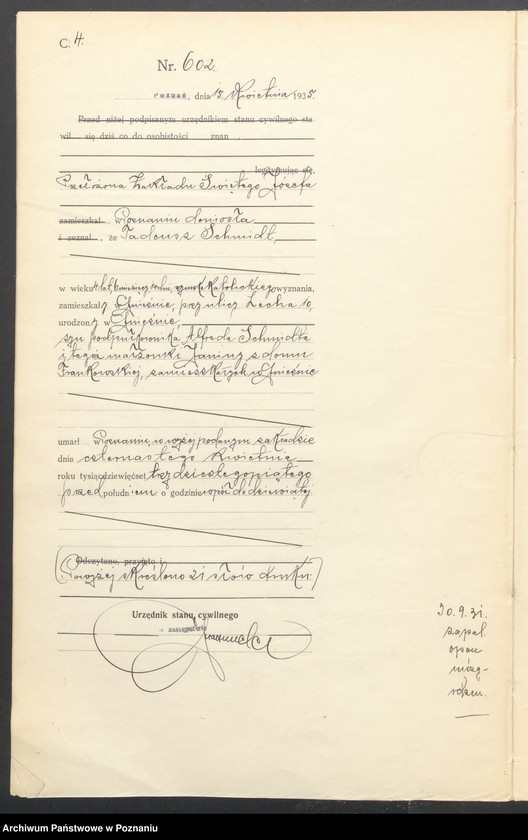 C. 4.
Nr. 602.
Poznań, dnia 15. Kwietnia 1935.
Przed niżej podpisanym urzędnikiem stanu cywilnego sta
wił się dziś co do osobistości znan
legitymując się,
Przełożona Zakładu Świętego Józefa
zamieszkał w Poznaniu doniosła
i zeznał, że Tadeusz Schmidt,
w wieku lat, katolickiego wyznania,
zamieszkały w Gnieźnie, przy ulicy Lecha 10,
urodzony w Gnieźnie,
syn podpułkownika Alfreda Schmidta
i jego małżonki Janiny z domu
Frankowskiej, zamieszkałych w Gnieźnie
umarł w Poznaniu, w wyżej podanym zakładzie
dnia czternastego Kwietnia
roku tysiąc dziewięćset trzydziestego piątego
przed południem o godzinie wpół do dziewiątej
Odczytano, przyjęto i
Powyżej skreślono 21 słów druku.
Urzędnik stanu cywilnego
w zastępstwie
30. 9. 31.
zapal.
opon
mózg-
rdzen.
Archiwum Państwowe w Poznaniu